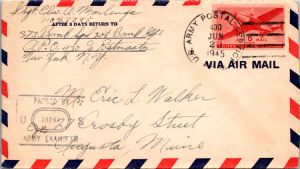 Sgt. Chas. A. Martenga
AFTER 5 DAYS RETURN TO
373 Bomb Sqd 308 Bomb Gp.
A.P.O. 430 % Postmaster
New York, N.Y.
U.S. ARMY POSTAL SERVICE
430
JUN
23
1945
6¢
VIA AIR MAIL
PASSED BY
U S
ARMY EXAMINER
Mr. Eric L. Walker
Crosby Street
Augusta, Maine